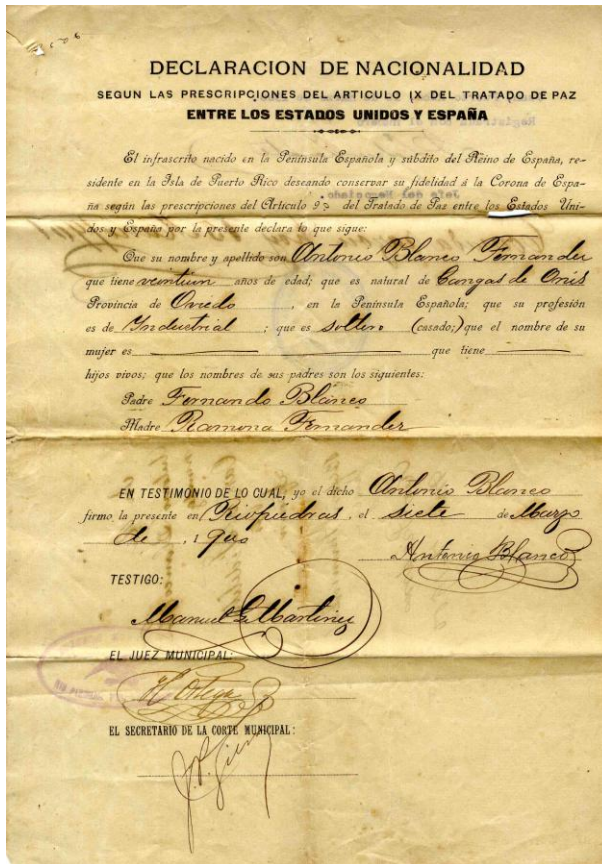 DECLARACION DE NACIONALIDAD
SEGUN LAS PRESCRIPCIONES DEL ARTICULO IX DEL TRATADO DE PAZ
ENTRE LOS ESTADOS UNIDOS Y ESPAÑA
El infrascrito nacido en la Península Española y súbdito del Reino de España, re-
sidente en la Isla de Puerto Rico deseando conservar su fidelidad á la Corona de Espa-
ña según las prescripciones del Artículo 9º del Tratado de Paz entre los Estados Uni-
dos y España por la presente declara lo que sigue:
Que su nombre y apellido son Antonio Blanco Fernander
que tiene veintiun años de edad; que es natural de Cangas de Onis
Provincia de Oviedo, en la Península Española; que su profesión
es de Industrial; que es soltero (casado;) que el nombre de su
mujer es que tiene
hijos vivos; que los nombres de sus padres son los siguientes:
Padre Fernando Blanco
Madre Ramona Fernander
EN TESTIMONIO DE LO CUAL, yo el dicho Antonio Blanco
firmo la presente en Riopiedras, el siete de Marzo
de, 1900
Antonio Blanco
TESTIGO:
Manuel G Martinez
EL JUEZ MUNICIPAL:
Ortega
EL SECRETARIO DE LA CORTE MUNICIPAL: